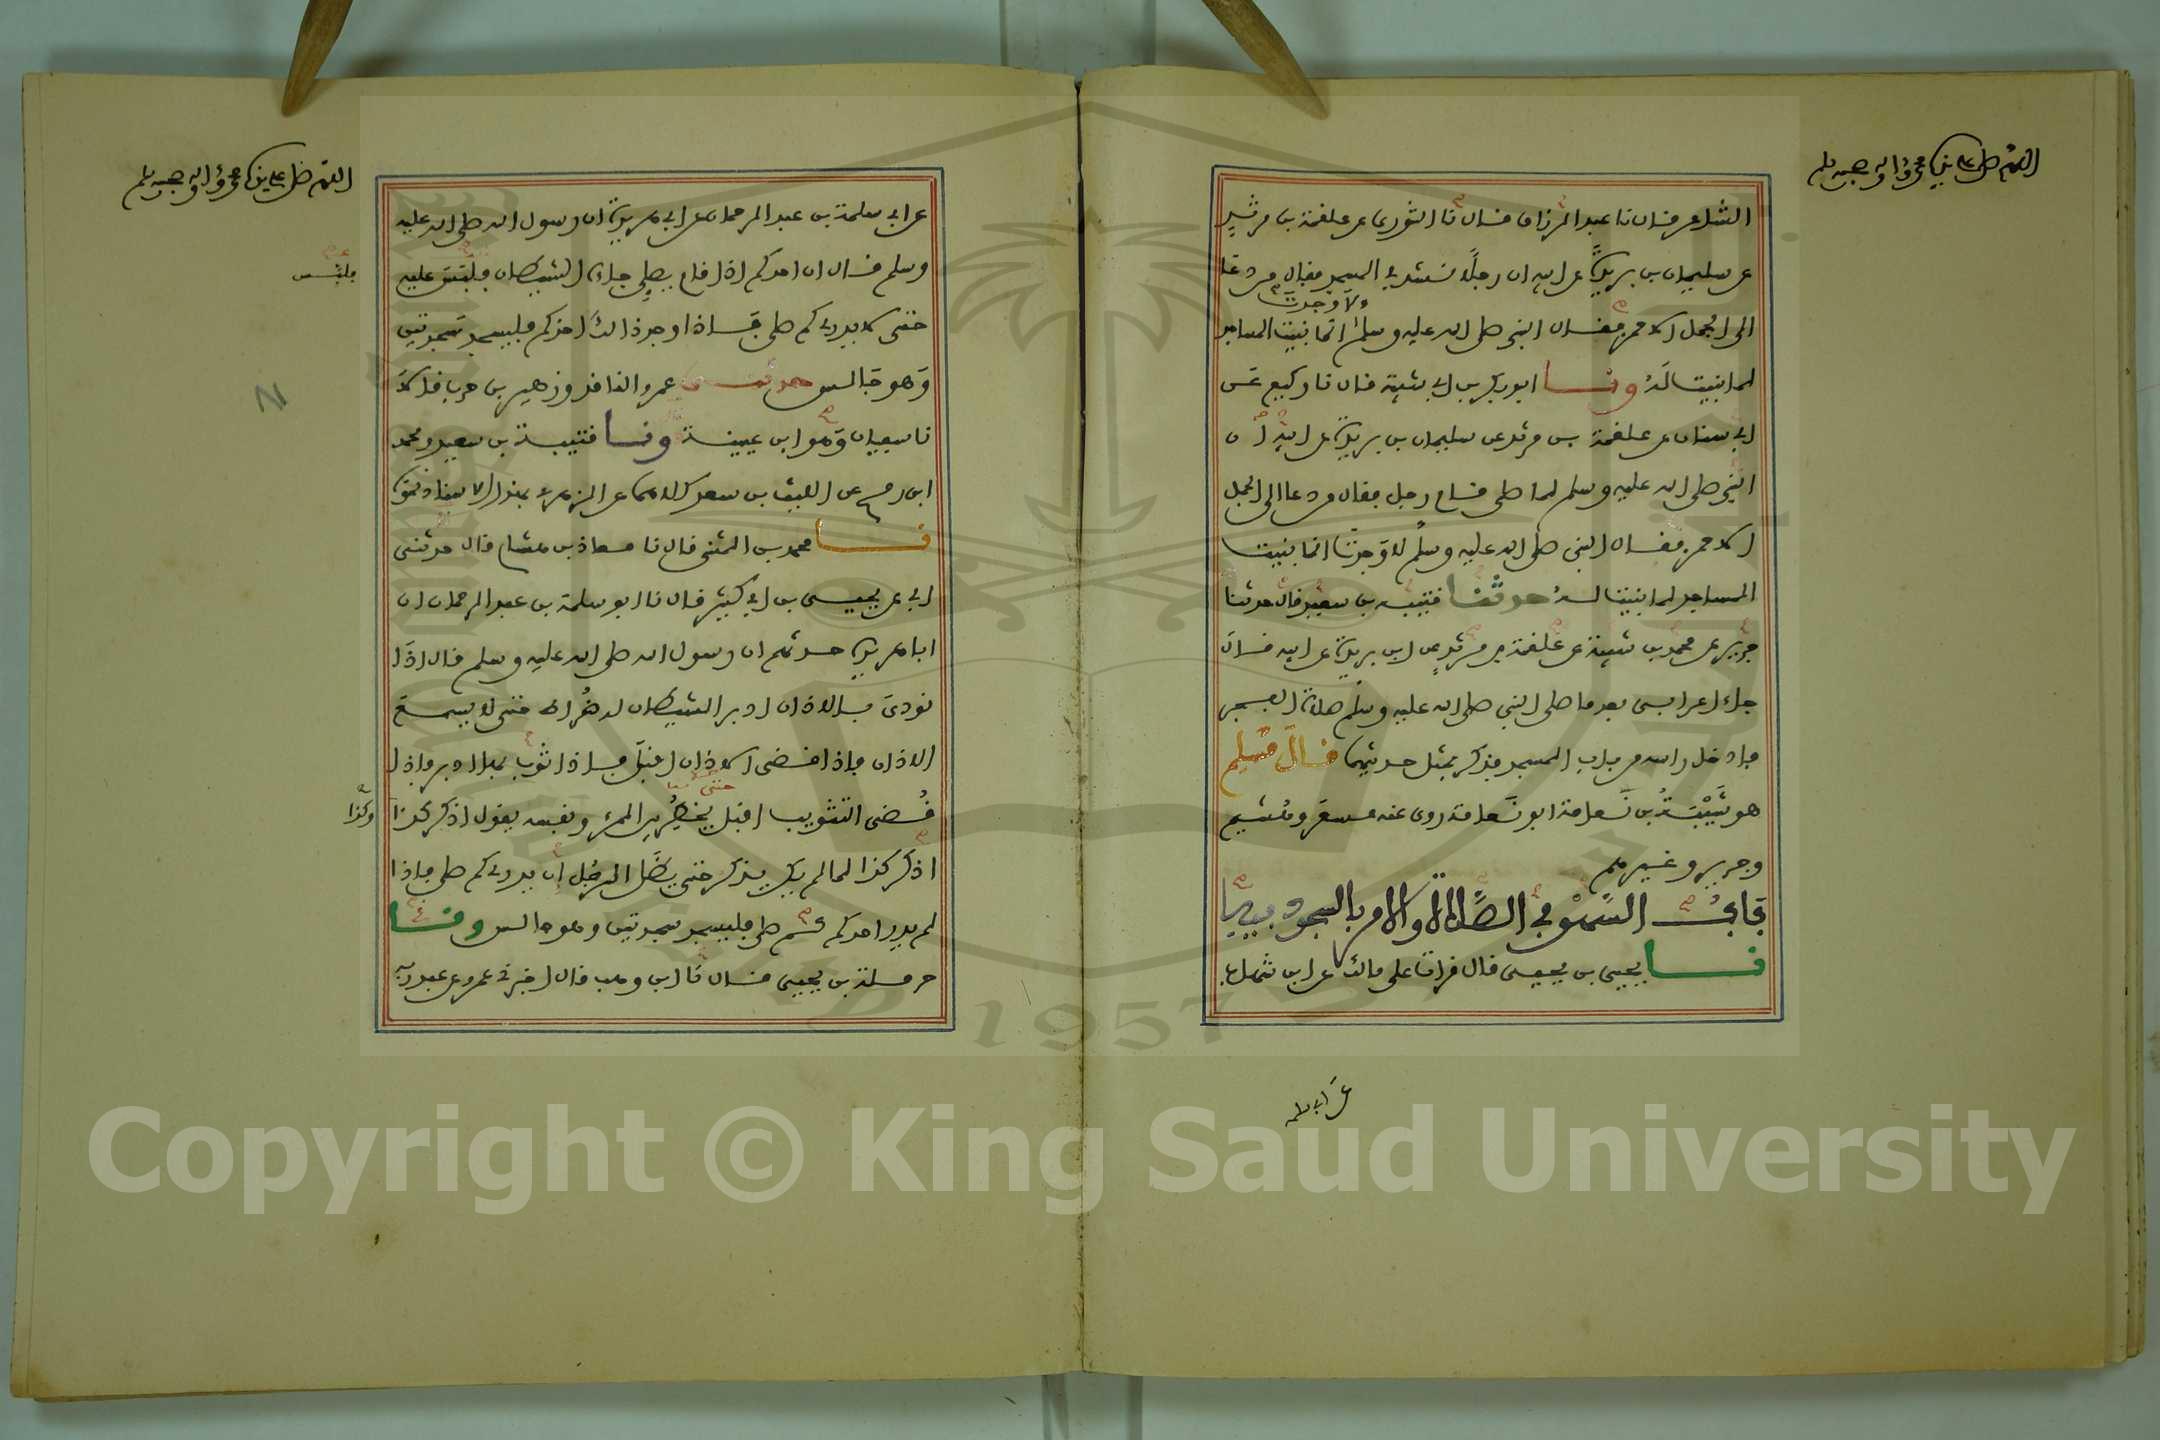 اللهم صل على سيدنا محمد وآله وصحبه وسلم
الشاعر قال نا عبد الرزاق قال نا الثوري عن علقمة بن مرثد
عن سليمان بن بريدة عن ابيه ان رجلا نشد في المسجد فقال من دعا
لا وجدت
الى الجمل الاحمر فقال النبي صلى الله عليه وسلم انما بنيت المساجد
لما بنيت له ونا ابو بكر بن ابي شيبة قال نا وكيع عن
ابي سنان عن علقمة بن مرثد عن سليمان بن بريدة عن ابيه ان
النبي صلى الله عليه وسلم لما صلى قام رجل فقال من دعا الى الجمل
الاحمر فقال النبي صلى الله عليه وسلم لا وجدت انما بنيت
المساجد لما بنيت له حدثنا قتيبة بن سعيد قال حدثنا
جرير عن محمد بن شيبة عن علقمة بن مرثد عن ابن بريدة عن ابيه قال
جاء اعرابي بعد ما صلى النبي صلى الله عليه وسلم صلاة الفجر
فادخل راسه من باب المسجد فذكر بمثل حديثهما قال مسلم
هو شَيْبَةُ بن نَعامة ابو نَعامة روى عنه مسعر وهُشيم
وجرير وغيرهم
باب السهو في الصلاة والامر بالسجود فيها
نا يحيى بن يحيى قال قرات على مالك عن ابن شهاب
عن ابي سلمة
اللهم صل على سيدنا محمد وآله وصحبه وسلم
عن ابي سلمة بن عبد الرحمان عن ابي هريرة ان رسول الله صلى الله عليه
وسلم قال ان احدكم اذا قام يصلي جاءه الشيطان فلبس عليه
فلبس
حتى لا يدري كم صلى فاذا وجد ذالك احدكم فليسجد سجدتين
وهو جالس حدثنى عمرو الناقد وزهير بن حرب قالا
نا سفيان وهو ابن عيينة ونا قتيبة بن سعيد ومحمد
ابن رمح عن الليث بن سعد كلاهما عن الزهري بهذا الاسناد نحوه
نا محمد بن المثنى قال نا معاذ بن هشام قال حدثني
ابي عن يحيى بن ابي كثير قال نا ابو سلمة بن عبد الرحمان ان
ابا هريرة حدثهم ان رسول الله صلى الله عليه وسلم قال اذا
نودي بالاذان ادبر الشيطان له ضُراط حتى لا يسمع
الاذان فاذا قضى الاذان اقبل فاذا ثوب بها ادبر فاذا
قُضي التثويب اقبل يخطر بين المرء ونفسه يقول اذكر كذا
وكذا
اذكر كذا لما لم يكن يذكر حتى يضل الرجل ان يدري كم صلى فاذا
لم يدر احدكم كم صلى فليسجد سجدتين وهو جالس ونا
حرملة بن يحيى قال نا ابن وهب قال اخبرني عمرو عن عبد ربه
Copyright © King Saud University
1957